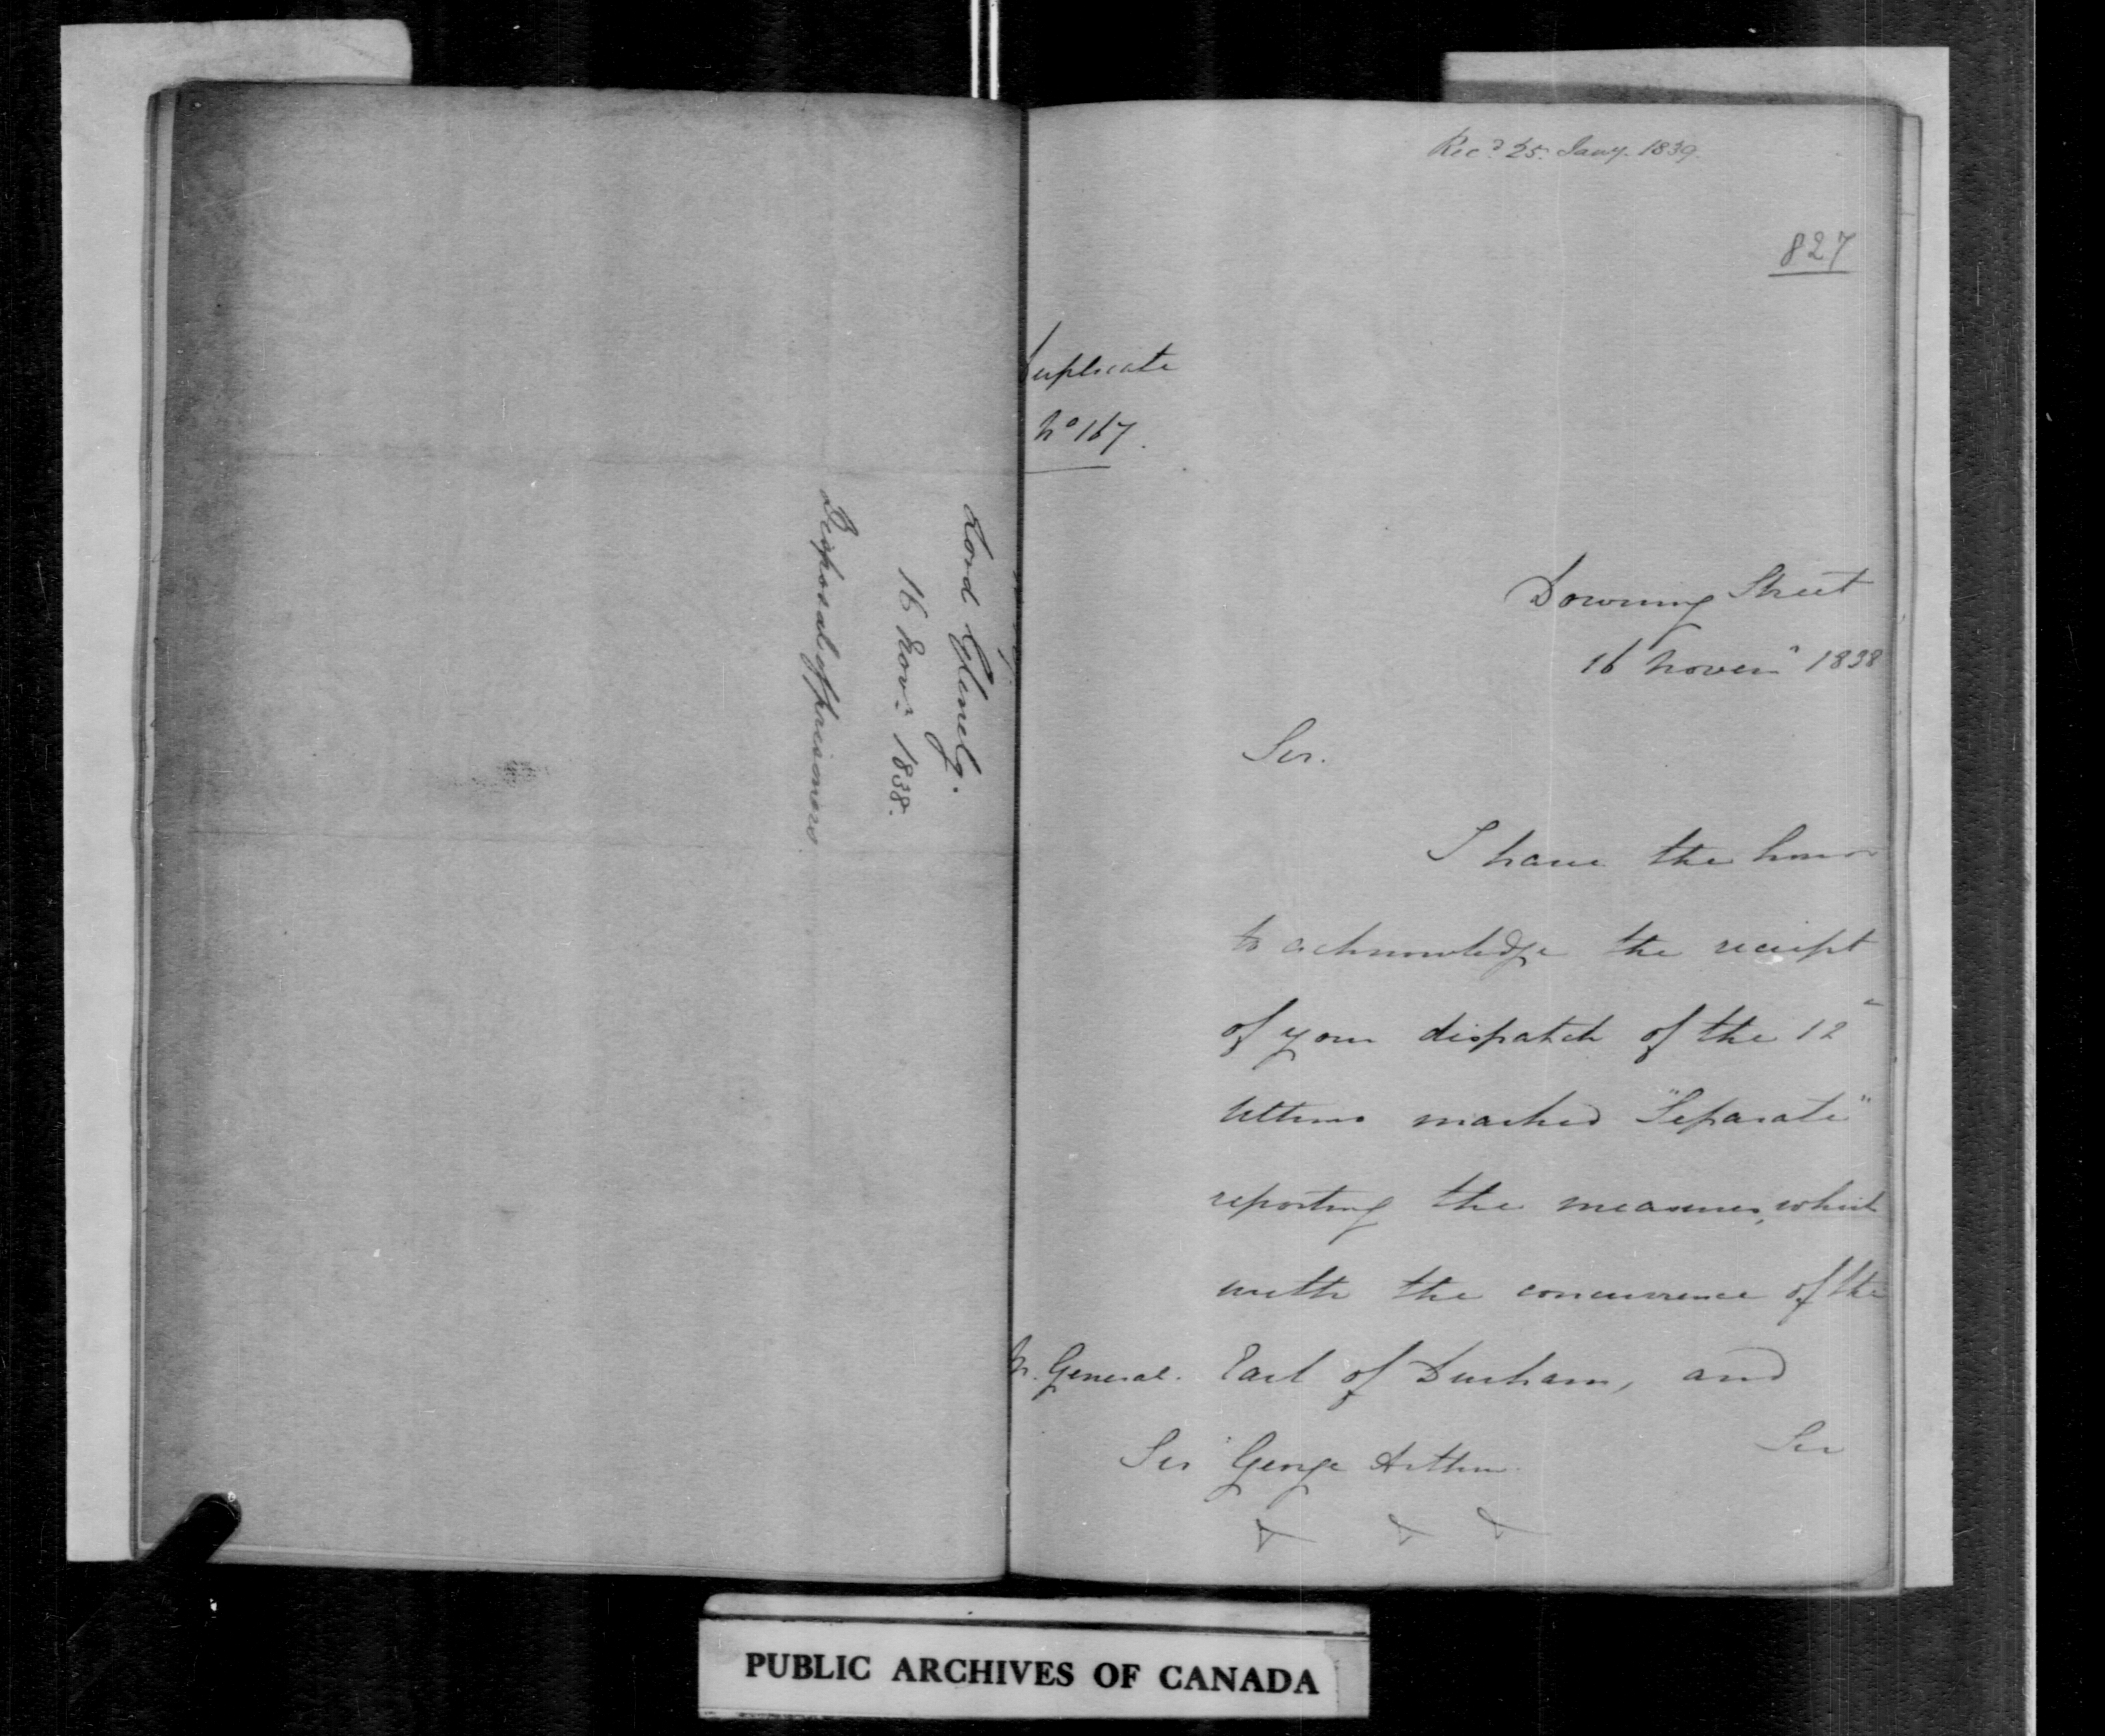 Lord Glenelg.
16 Novr. 1838.
Disposal of prisoners.
Recd. 25. Jany. 1839.
827
Duplicate
No 167.
Downing Street
16 Novemr 1838
Sir.
I have the honor
to acknowledge the receipt
of your dispatch of the 12th
Ultimo marked "Separate"
reporting the measures, which
with the concurrence of the
Earl of Durham, and
Sir
M. General.
Sir George Arthur.
&c &c &c
PUBLIC ARCHIVES OF CANADA